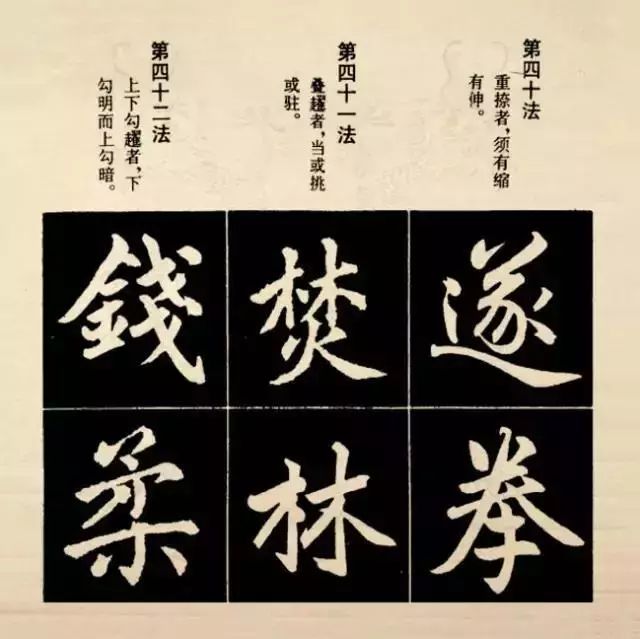 第四十法
重捺者，须有缩
有伸。
遂拳
第四十一法
叠趯者，当或挑
或驻。
焚林
第四十二法
上下勾趯者，下
勾明而上勾暗。
錢柔